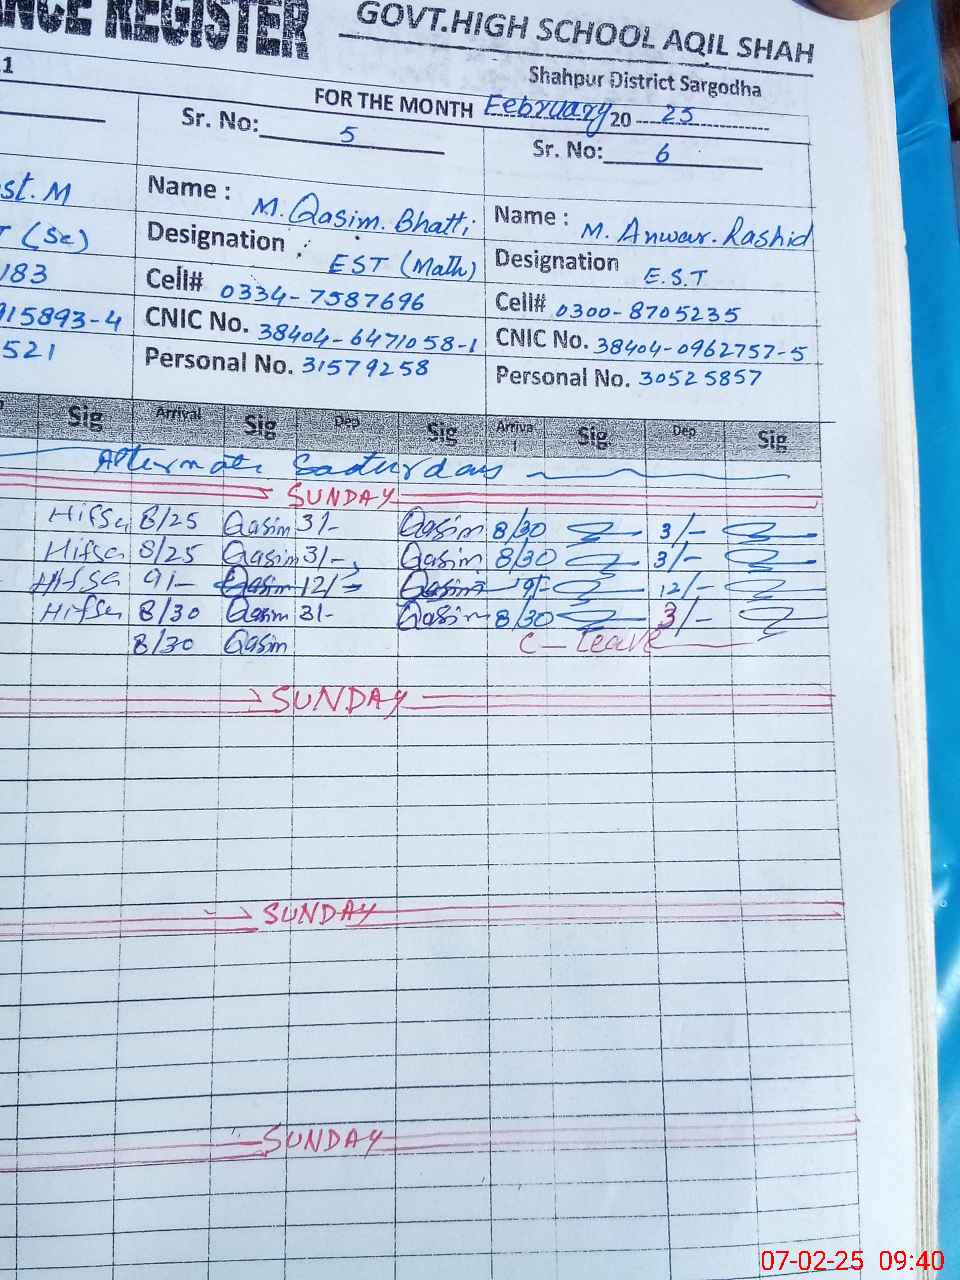 NCE REGISTER
GOVT.HIGH SCHOOL AQIL SHAH
Shahpur District Sargodha
1
FOR THE MONTH February 20 25
Sr. No: 5
Sr. No: 6
st. M
Name : M. Qasim. Bhatti
Name : M. Anwar. Rashid
T (Sc)
Designation : EST (Math)
Designation E.S.T
183
Cell# 0334-7587696
Cell# 0300-8705235
915893-4
CNIC No. 38404-6471058-1
CNIC No. 38404-0962757-5
521
Personal No. 31579258
Personal No. 30525857
Sig Arrival Sig Dep Sig Arriva l Sig Dep Sig
Alternate Saturdays
SUNDAY
Hifsa 8/25 Qasim 3/- Qasim 8/30 3/-
Hifsa 8/25 Qasim 3/- Qasim 8/30 3/-
Hifsa 9/- Qasim 12/- Qasim 9/- 12/-
Hifsa 8/30 Qasim 3/- Qasim 8/30 3/-
8/30 Qasim C - Leave
SUNDAY
SUNDAY
SUNDAY
07-02-25 09:40